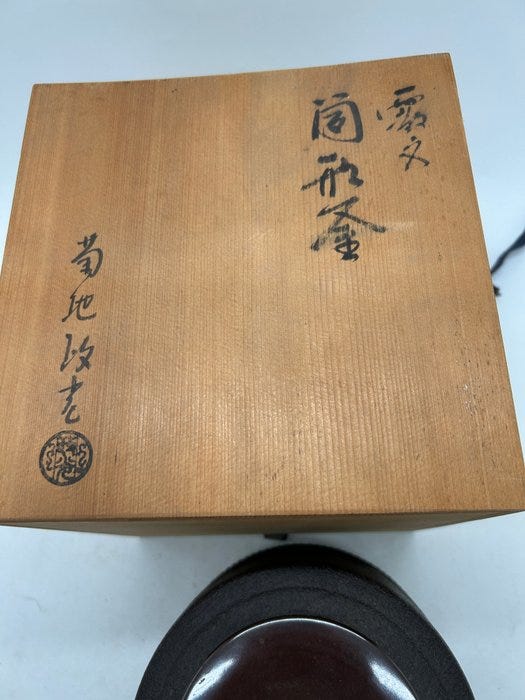 霰文
筒形釜
菊地政光